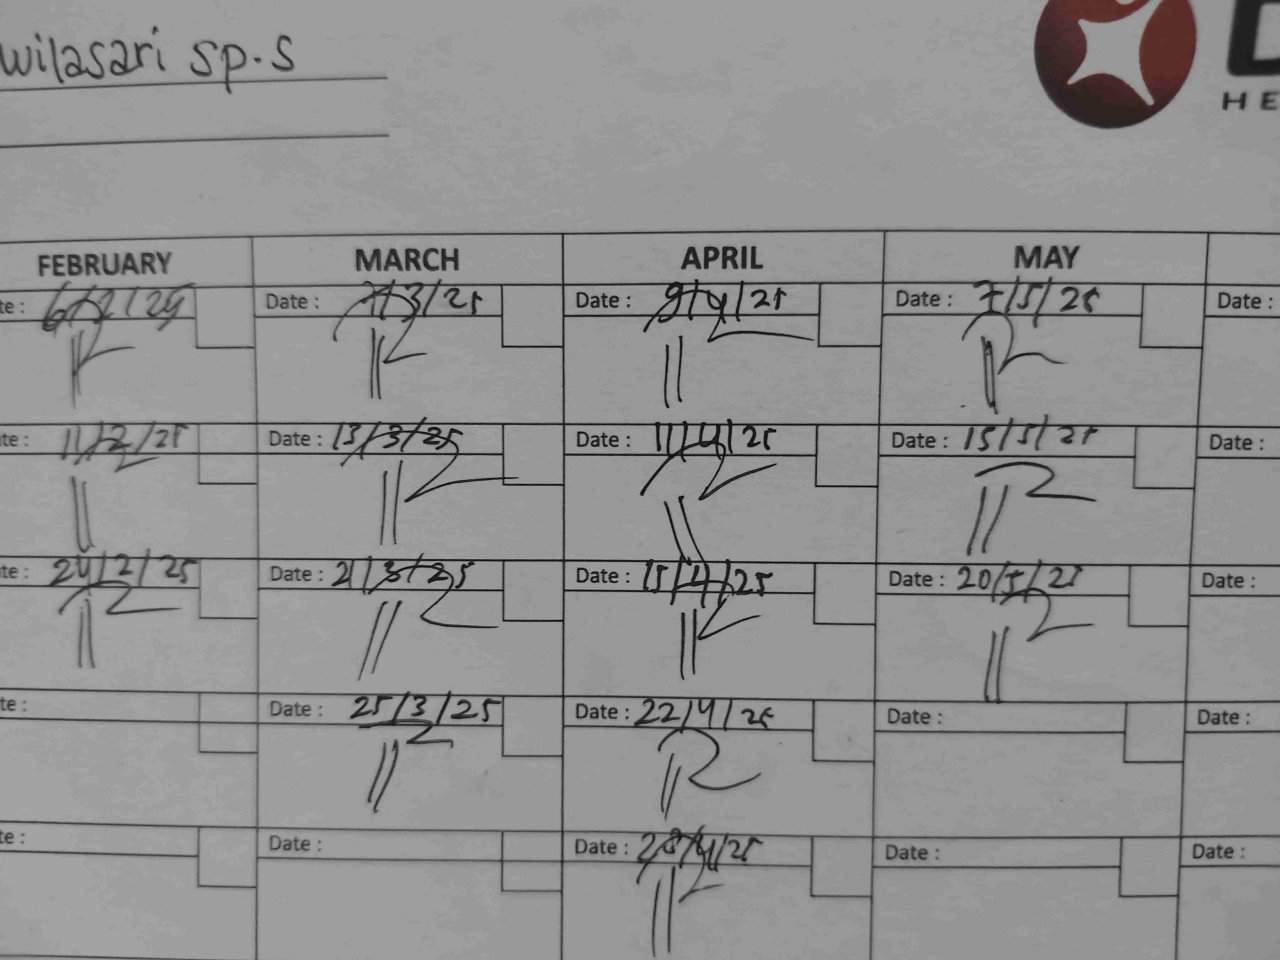 wilasari sp.s
HE
FEBRUARY MARCH APRIL MAY
te : 6/2/25 Date : 7/3/25 Date : 9/4/25 Date : 7/5/25 Date :
te : 11/2/25 Date : 13/3/25 Date : 11/4/25 Date : 15/5/25 Date :
te : 24/2/25 Date : 21/3/25 Date : 15/4/25 Date : 20/5/25 Date :
te : Date : 25/3/25 Date : 22/4/25 Date : Date :
te : Date : Date : 28/4/25 Date : Date :